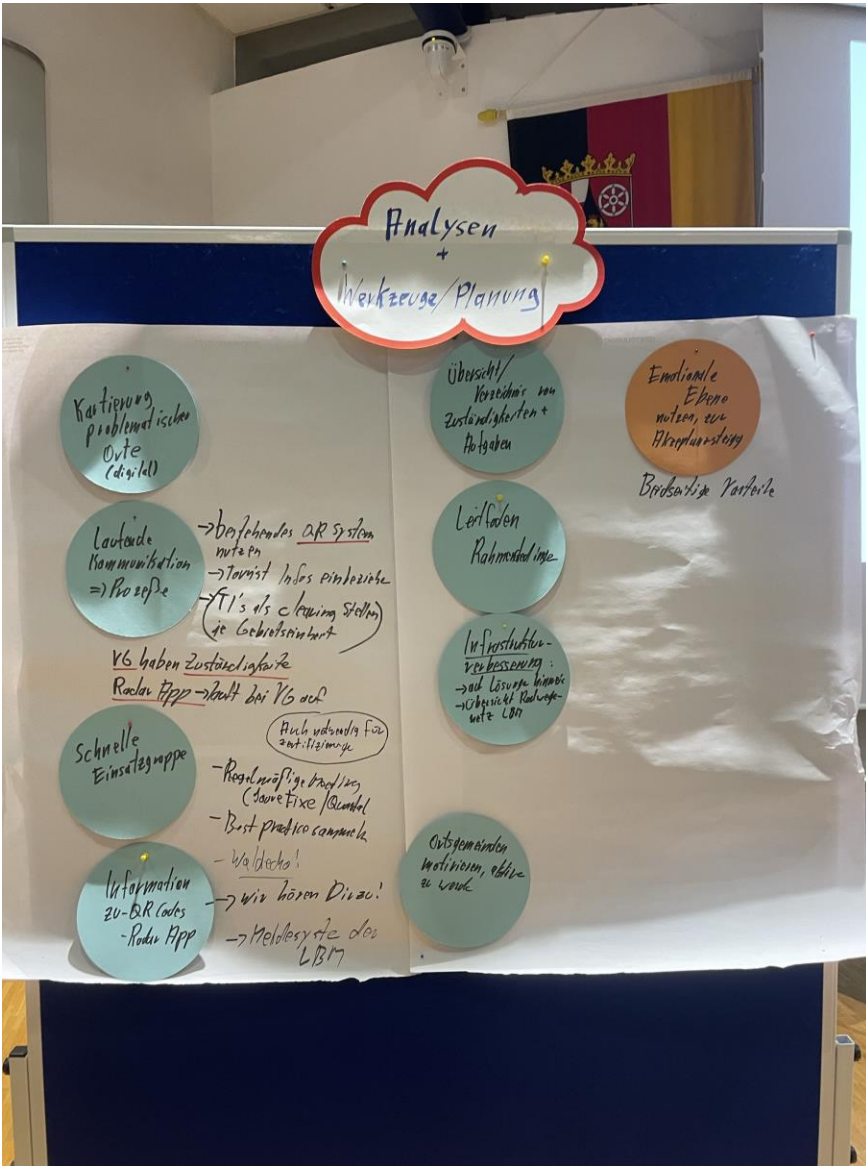 Analysen
+
Werkzeuge/Planung
Kartierung
problematischer
Orte
(digital)
Laufende
Kommunikation
=> Prozeße
-> bestehendes QR System
nutzen
-> Tourist Infos einbeziehe
-> (TI's als clearing Stellen
je Gebietseinheit)
VG haben Zuständigkeite
Radar App -> lauft bei VG auf
Auch notwendig für
Schnelle
Einsatzgruppe
- Regelmäßige
(Jour Fixe / Quartal
- Best practice sammeln
- Waldecho!
-> wir hören Dir zu!
-> Meldesyste des
LBM
Information
zu - QR Codes
- Radar App
Übersicht/
Verzeichnis von
Zuständigkeiten +
Aufgaben
Leitfaden
Rahmenbedinge
Infrastruktur-
verbesserung:
-> auf Lösunge hinweis
-> Übersicht Radwege-
netz LBM
Ortsgemeinden
motivieren, aktiv
zu werde
Emotionale
Ebene
nutzen, zur
Beidseitige Vorteile